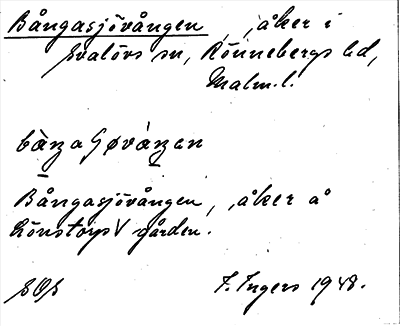 Bångasjövången, åker i
Svalövs sn, Rönnebergs hd,
Malm. l.
Bångasjövången, åker å
gården.
F. Ingers 1948.